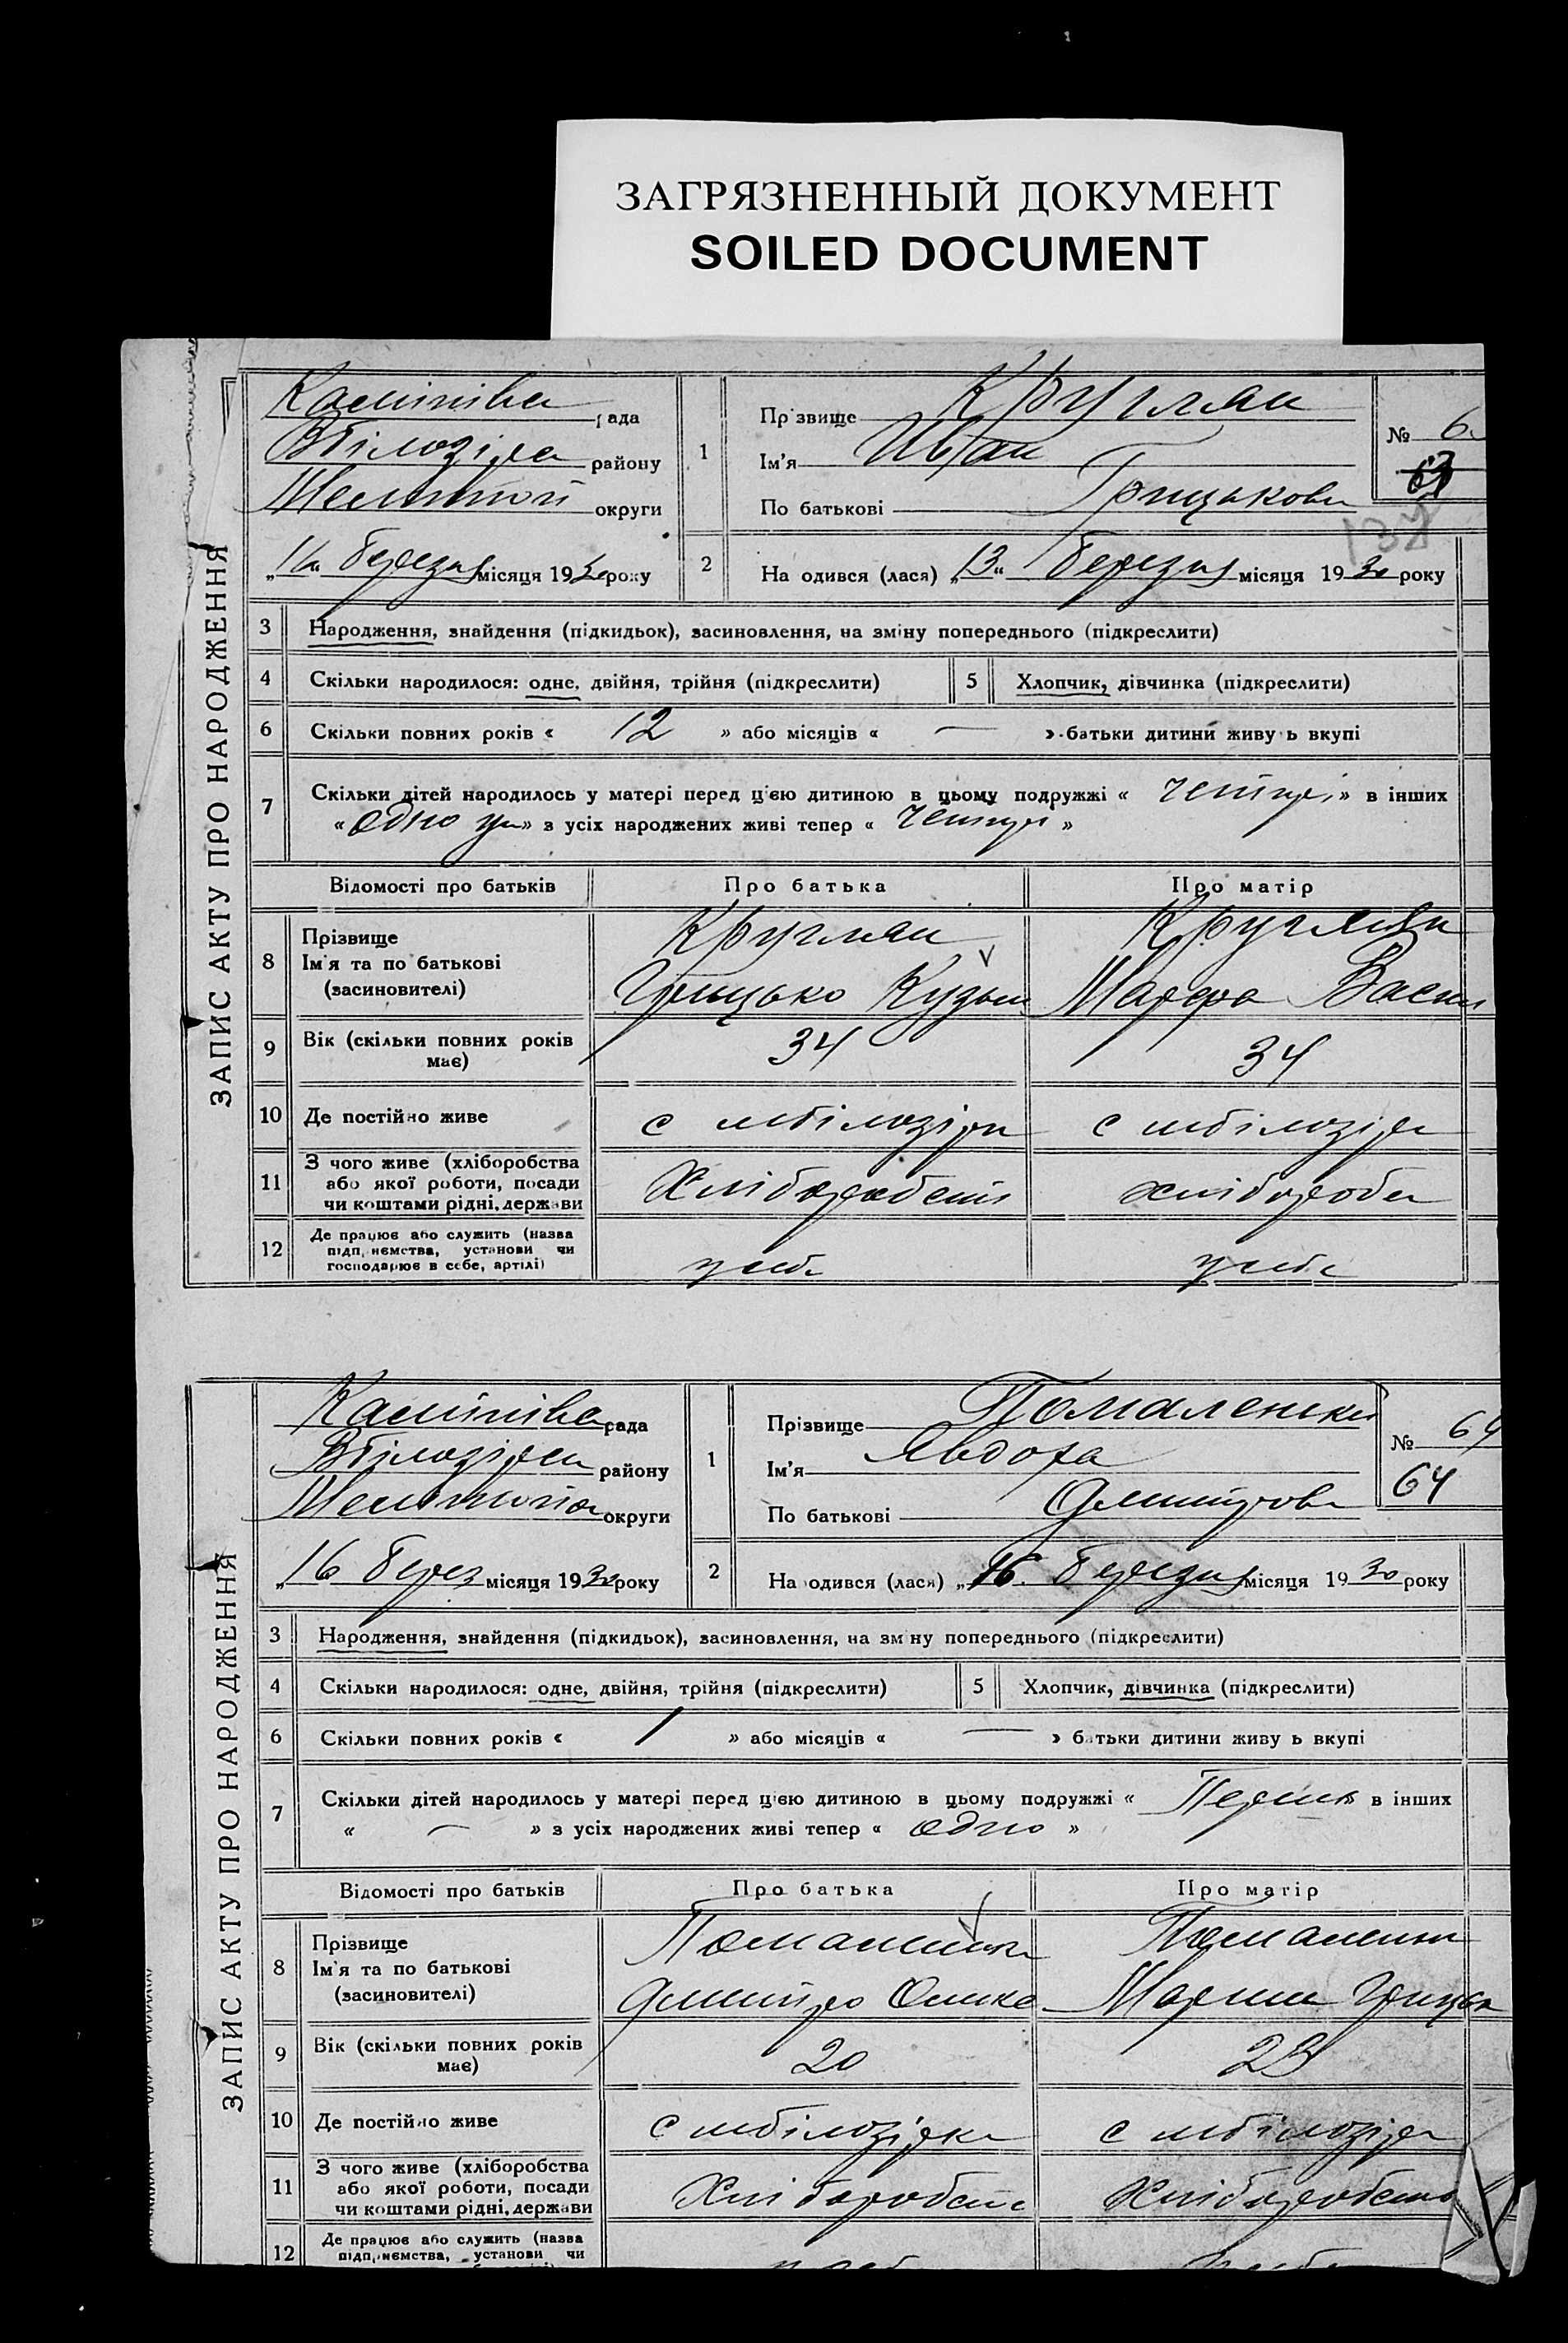 ЗАГРЯЗНЕННЫЙ ДОКУМЕНТ
SOILED DOCUMENT
ЗАПИС АКТУ ПРО НАРОДЖЕННЯ
рада
району
округи
„16 Березня місяця 1930 року
1
Прізвище Кругляк
Ім'я Иван
По батькові Грицькови
№ 6
63
2
На одився (лася) „13“ Березня місяця 1930 року
3 Народження, знайдення (підкидьок), засиновлення, на зміну попереднього (підкреслити)
4 Скільки народилося: одне, двійня, трійня (підкреслити)
5 Хлопчик, дівчинка (підкреслити)
6 Скільки повних років « 12 » або місяців « — » батьки дитини живу ь вкупі
7 Скільки дітей народилось у матері перед цією дитиною в цьому подружжі « » в інших
« одно » з усіх народжених живі тепер « »
Відомості про батьків Про батька Про матір
8 Прізвище
Ім'я та по батькові
(засиновителі)
Кругляк
Грицько Кузьм
Марфа Васил
9 Вік (скільки повних років має) 34 34
10 Де постійно живе с мбілозірк с мбілозірк
11 З чого живе (хліборобства
або якої роботи, посади
чи коштами рідні, держави
Хлібороб хлібороб
12 Де працює або служить (назва
підп, иємства, установи чи
господарює в себе, артілі)
у себе у себе
ЗАПИС АКТУ ПРО НАРОДЖЕННЯ
рада
району
округи
„16 Берез місяця 1930 року
1
Прізвище Помаленьк
Ім'я Явдоха
По батькові Дмитров
№ 64
64
2
На одився (лася) „16. Березня місяця 1930 року
3 Народження, знайдення (підкидьок), засиновлення, на зм ну попереднього (підкреслити)
4 Скільки народилося: одне, двійня, трійня (підкреслити)
5 Хлопчик, дівчинка (підкреслити)
6 Скільки повних років « 1 » або місяців « — » батьки дитини живу ь вкупі
7 Скільки дітей народилось у матері перед цією дитиною в цьому подружжі « » в інших
« — » з усіх народжених живі тепер « одно »
Відомості про батьків Про батька Про матір
8 Прізвище
Ім'я та по батькові
(засиновителі)
Дмитро Марина Грицьк
9 Вік (скільки повних років має) 20 23
10 Де постійно живе с мбілозірка с мбілозірк
11 З чого живе (хліборобства
або якої роботи, посади
чи коштами рідні, держави
Хлібороб Хлібороб
12 Де працює або служить (назва
підп, иємства, установи чи